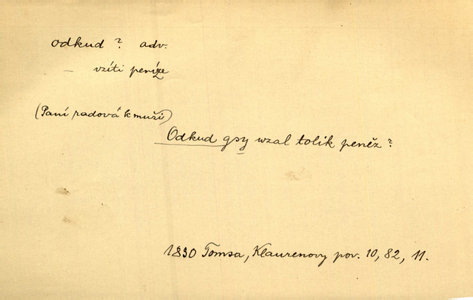 odkud ? adv.
– vzíti peníze
(Paní radová k muži)
Odkud gsy wzal tolik peněz ?
1830 Tomsa, Klaurenovy pov. 10, 82, 11.